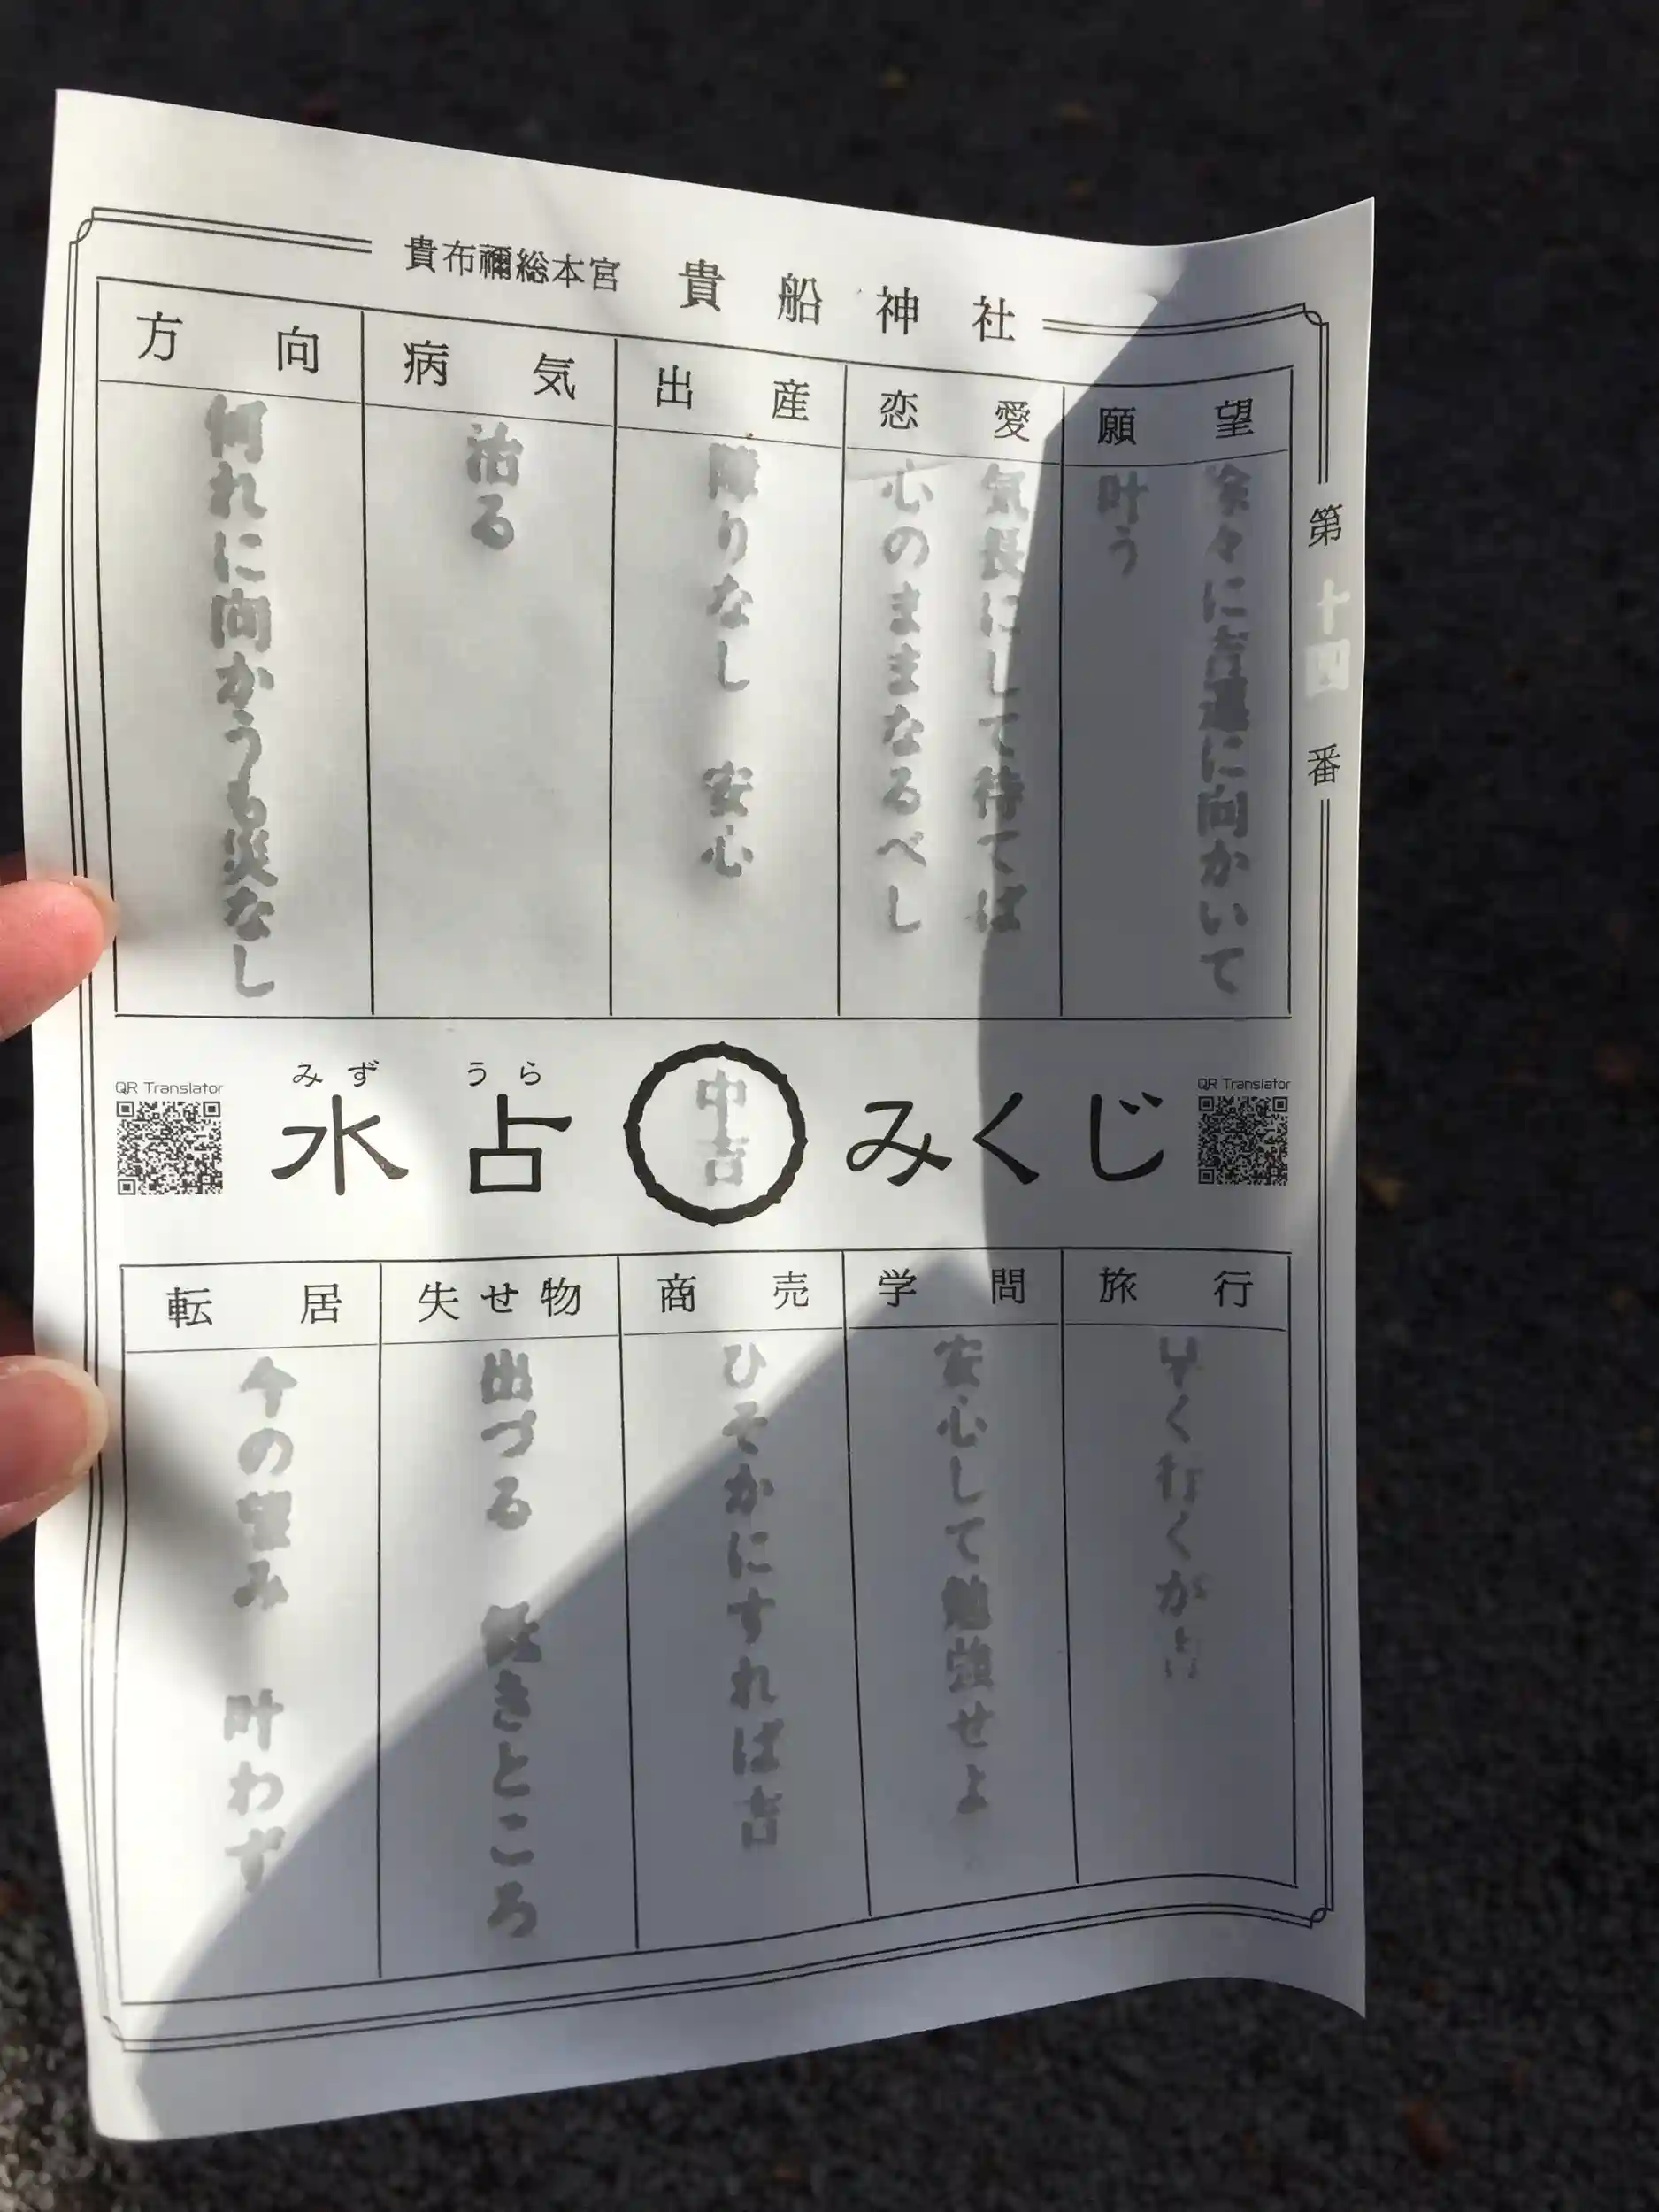 貴布禰総本宮 貴船神社
第十四番
願望
徐々に吉運に向かいて
叶う
恋愛
気長にして待てば
心のままなるべし
出産
障りなし 安心
病気
治る
方向
何れに向かうも災なし
QR Translator
みず うら
水占 みくじ
中吉
QR Translator
旅行
早く行くが吉
学問
安心して勉強せよ
商売
ひそかにすれば吉
失せ物
出づる 低きところ
転居
今の望み 叶わず